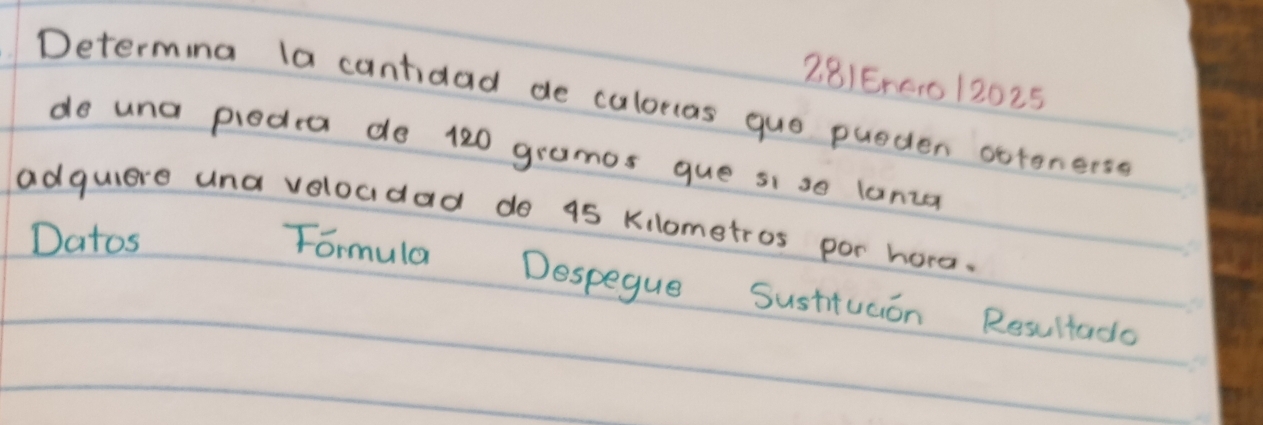 28/Enero/2025
Determina la cantidad de calorias que pueden obtenerse
de una piedra de 120 gramos que si se lanza
adquiere una velocidad de 45 Kilometros por hora.
Datos Fórmula Despegue Sustitución Resultado